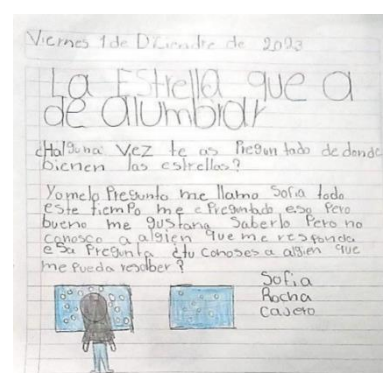 Viernes 1 de Diciendre de 2023
La Estrella que a
de alumbrar
¿Halguna vez te as Pregun tado de donde
bienen las estrellas?
Yo melo Pregunto me llamo Sofia todo
este tiempo me e Preguntado eso Pero
bueno me gustaria Saberlo Pero no
conosco a algien que me responda
esa Pregunta ¿tu conoses a algien que
me Pueda resolber?
Sofia
Rocha